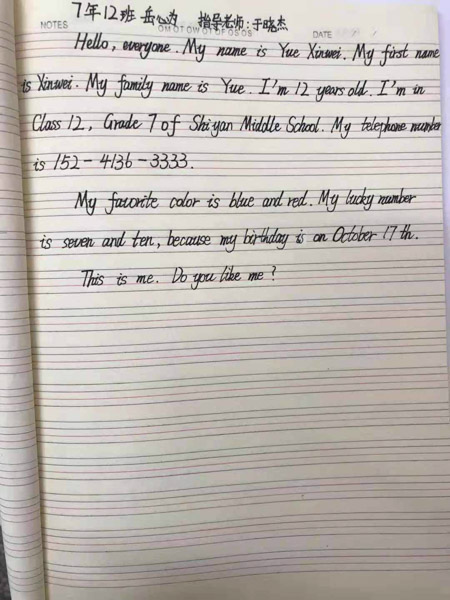 7年12班 岳心为 指导老师:于晓杰
NOTES DATE
Hello, everyone. My name is Yue Xinwei. My first name
is Xinwei. My family name is Yue. I'm 12 years old. I'm in
Class 12, Grade 7 of Shiyan Middle School. My telephone number
is 152-4136-3333.
My favorite color is blue and red. My lucky number
is seven and ten, because my birthday is on October 17th.
This is me. Do you like me?